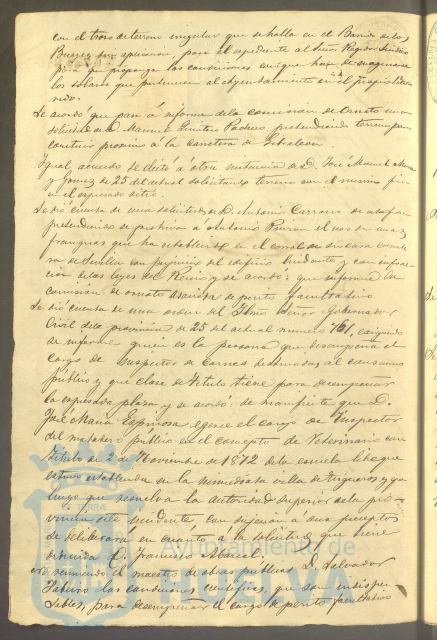 con el trozo de terreno irregular que se halla en el Barrio de los
para el expediente al Señor Regidor Sindico
para que proponga las condiciones en que han de enagenarse
los solares que pertenecen al Ayuntamiento en el
Se acordó que pase á informe de la comision de Ornato una
solicitud de D. Manuel Pacheco, pretendiendo terreno para
construir proximo á la carretera de Gibraleon.
Igual acuerdo se dictó á otra instancia de D. José Manuel
y Gomez de 25 del actual solicitando terreno con el mismo fin
en el espresado sitio.
Se dió cuenta de una solicitud de D. Antonio Carrasco
pretendiendo se prohiva á Antonio el uso de unas
fraguas que ha establecido en el corral de su casa
de Sevilla con perjuicio del edificio lindante y con infrac-
cion de las leyes del Reino y se acordó: que informe la
comision de ornato asociada de perito facultativo
Se dió cuenta de una orden del Ilmo Señor Gobernador
Civil de la provincia de 25 del actual numero 761, exigiendo
se informe quien es la persona que desempeña el
cargo de inspector de carnes destinadas al consumo
público y que clase de titulo tiene para desempeñar
la espresada plaza y se acordó: se manifieste que D.
José Maria Espinosa egerce el cargo de Inspector
del matadero público en el concepto de Veterinario con
titulo de 2 de Noviembre de 1872 de la escuela libre que
estuvo establecida en la inmediata villa de Trigueros y que
luego que resuelva la autoridad superior de la pro-
vincia este incidente, con sugecion á sus preceptos
se deliberará en cuanto á la solicitud que tiene
deducida D. Francisco
reuniendo el maestro de obras públicas D. Salvador
las condiciones cientificas, que son indispen-
sables, para desempeñar el cargo de perito facultativo
TERRA
Ayuntamiento de
HUELVA